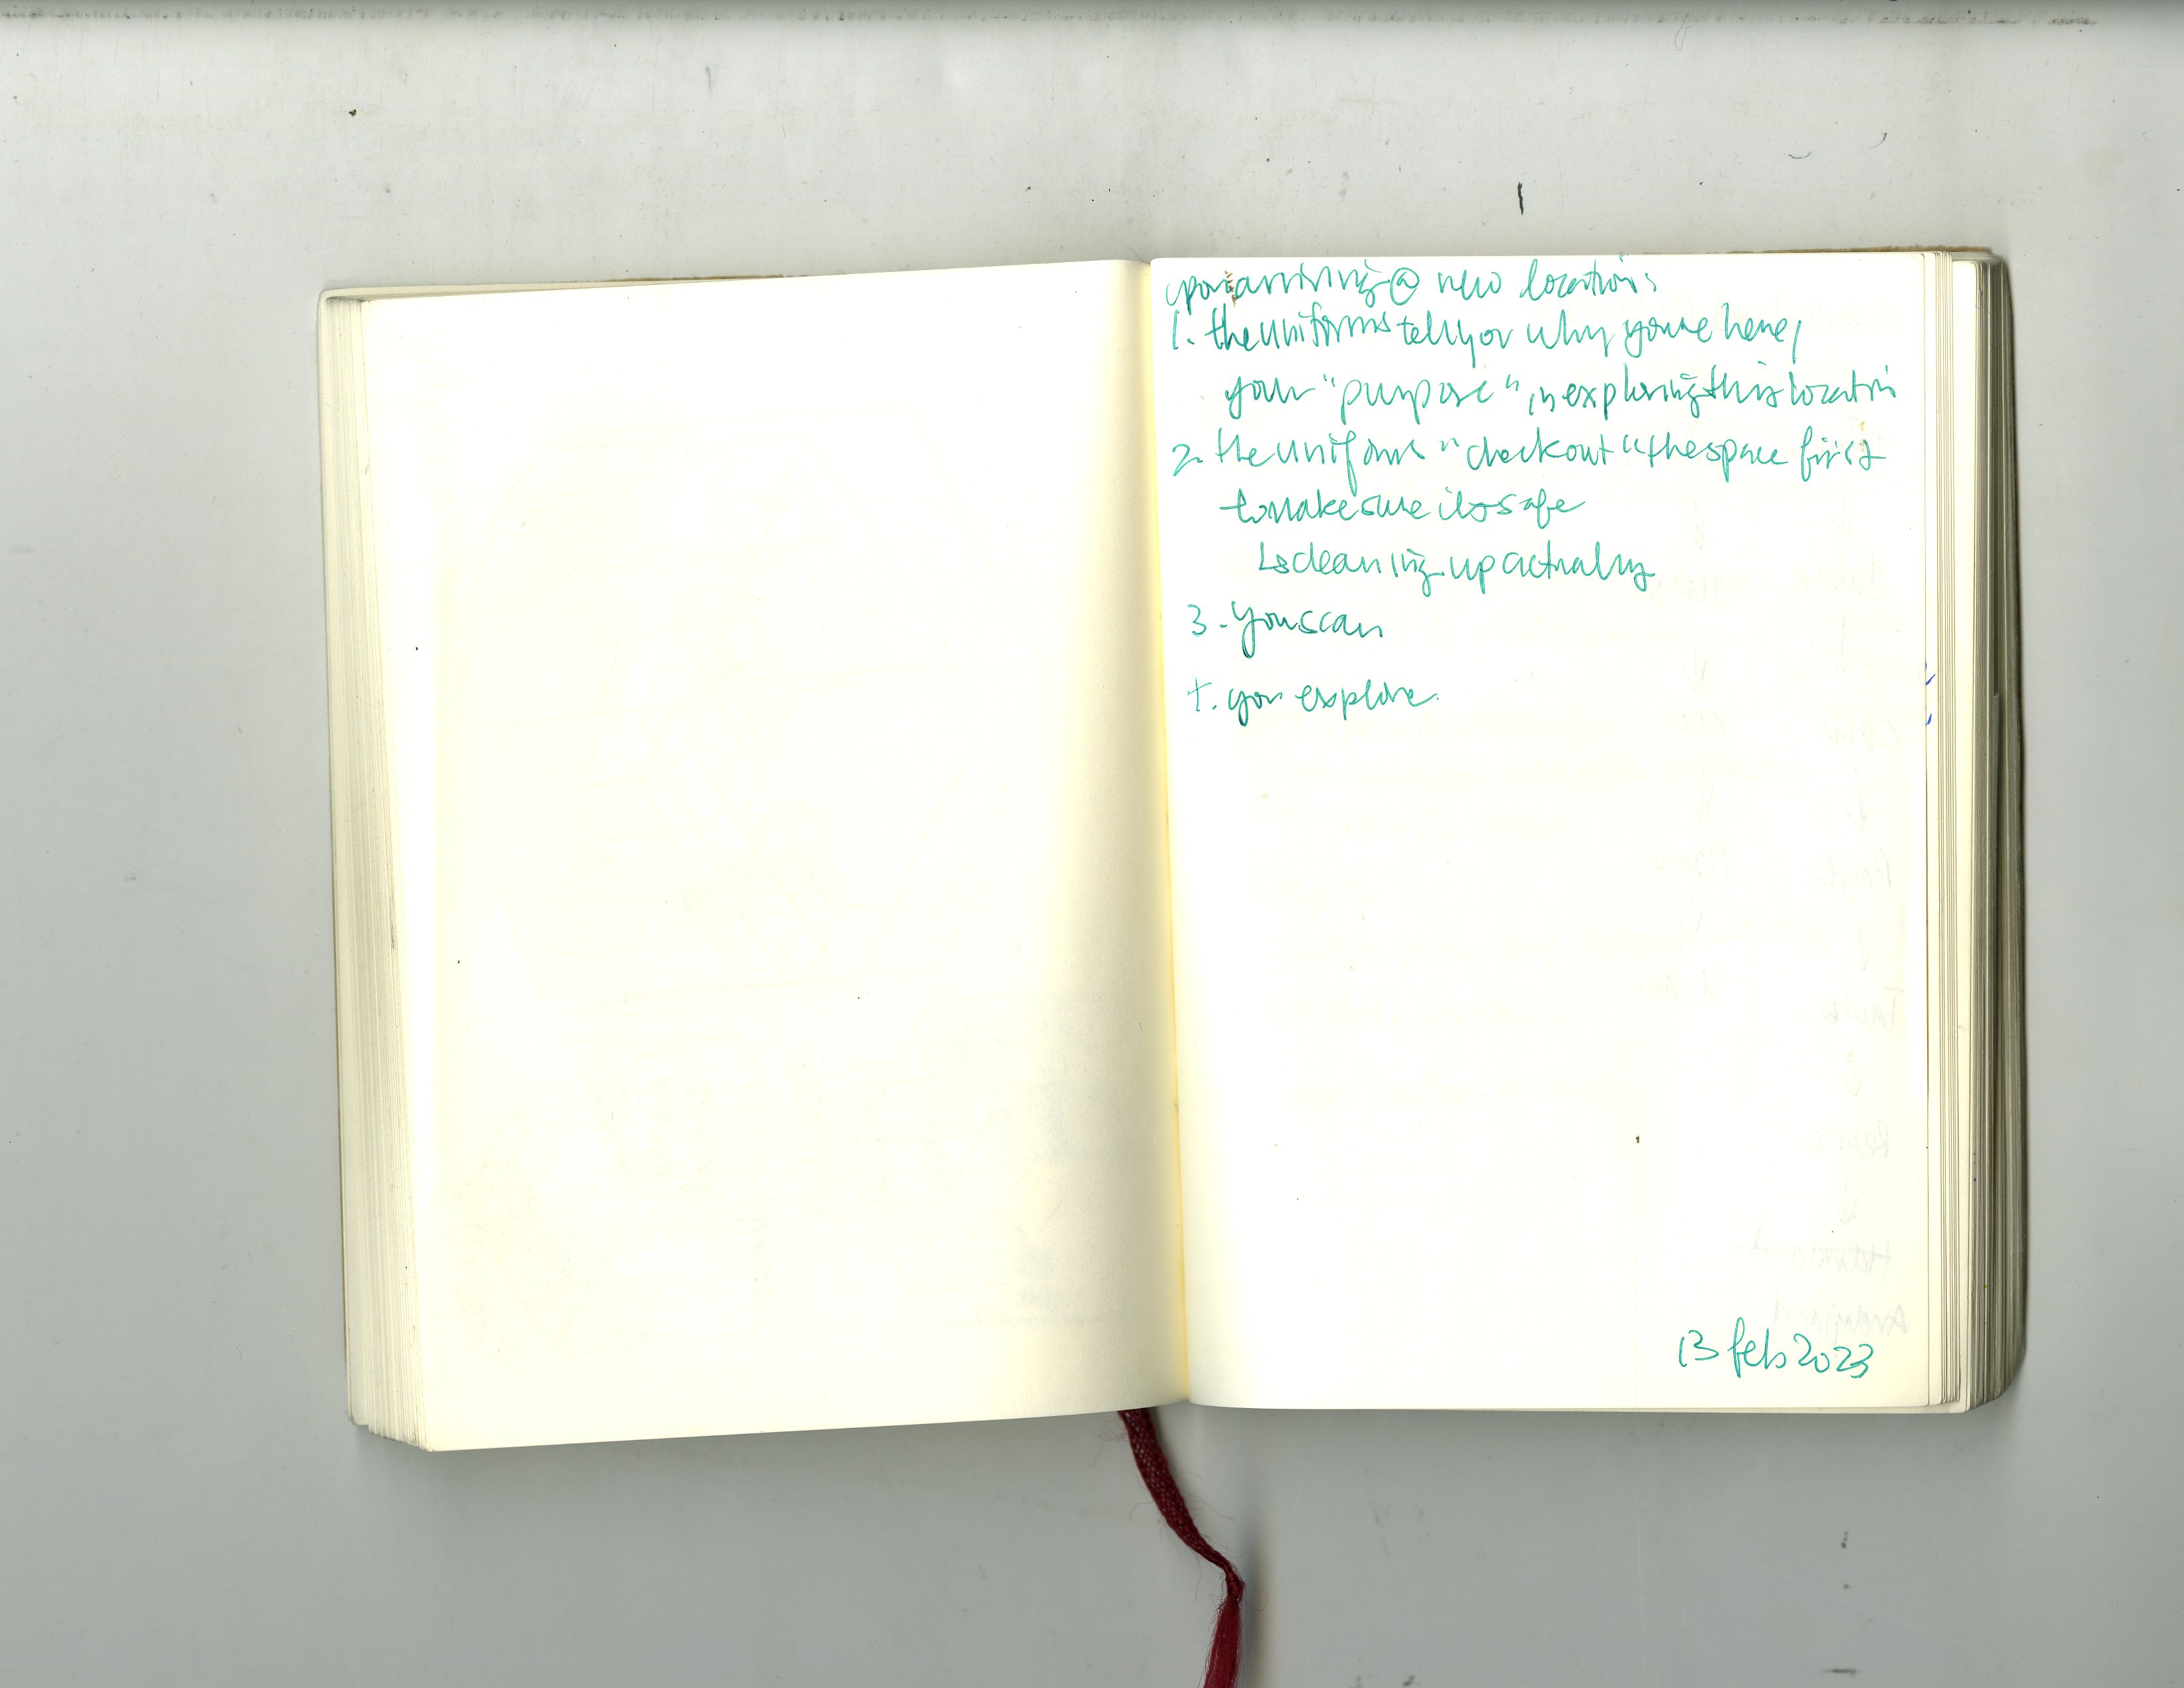 upon arriving @ new location:
1. the uniforms tell you why you're here,
your "purpose" in exploring this location
2. the uniforms "check out" the space first
to make sure its safe
↳ cleaning up actually
3. you scan
4. you explore.
13 feb 2023